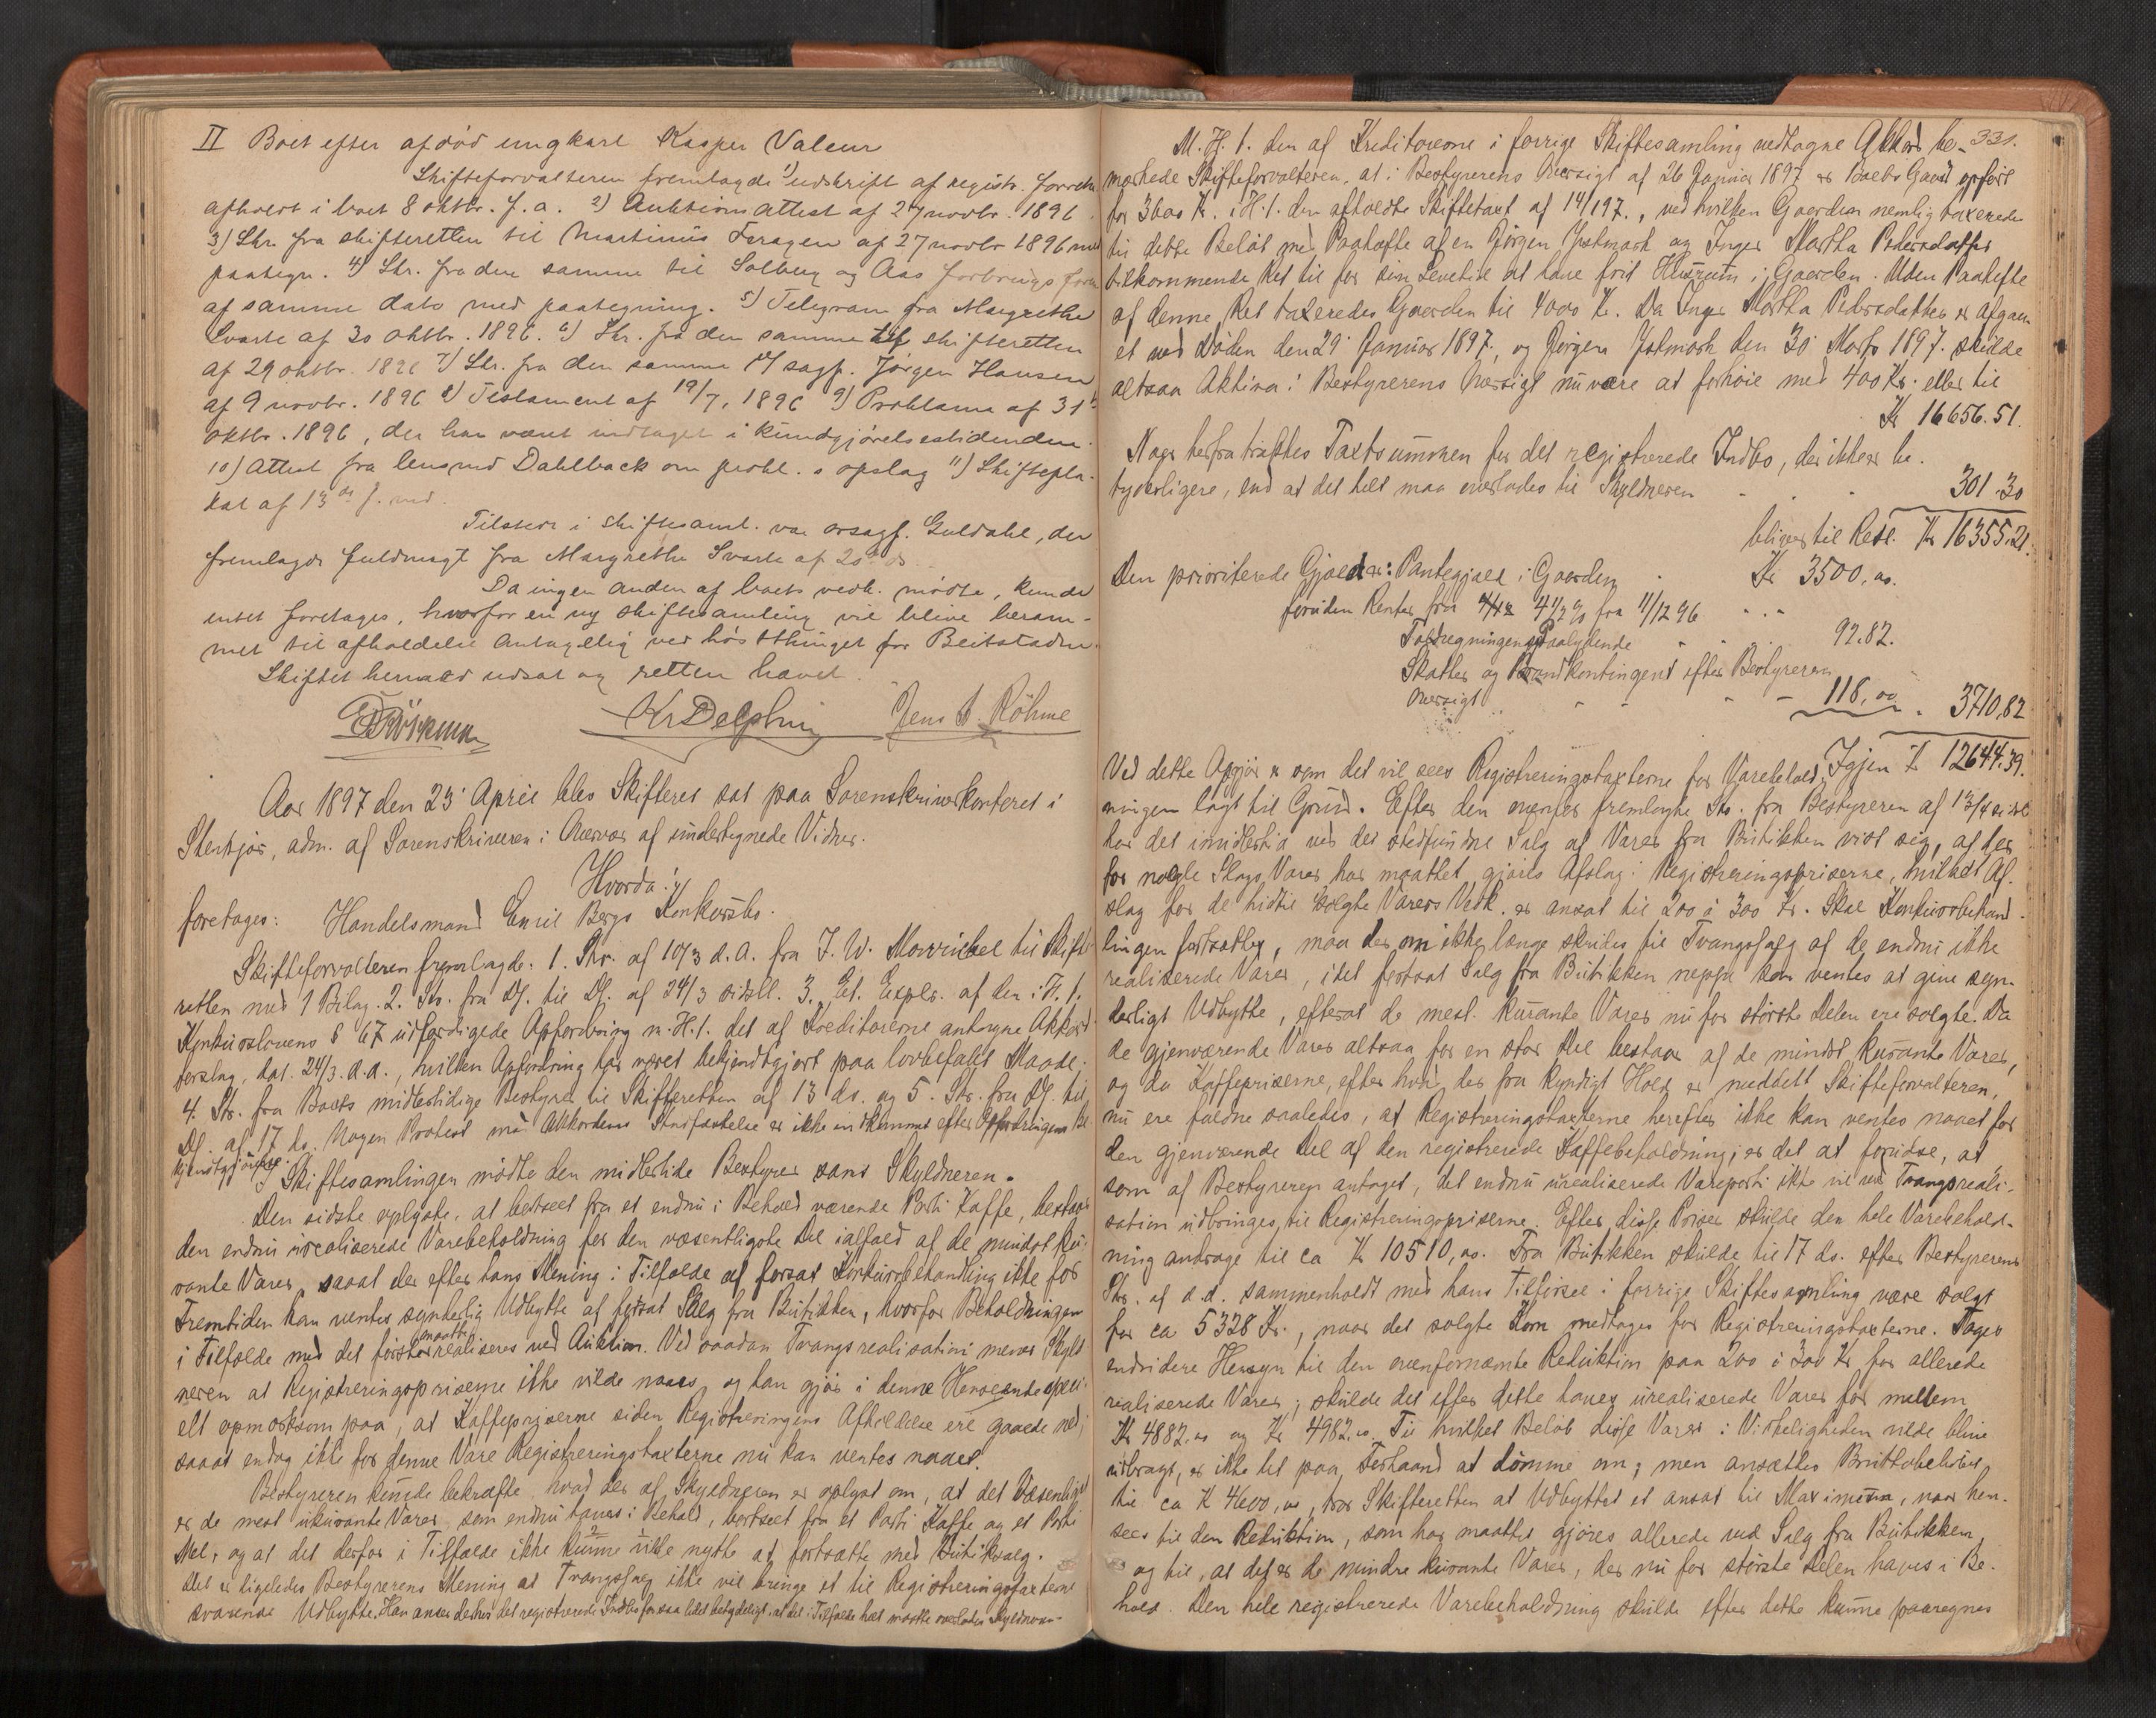 II Boet efter afdød ungkarl Kasper Valeur
Skifteforvalteren fremlagde 1) udskrift af registr. forretn.
afholdt i boet 8 oktbr. f. a. 2) Auktionsattest af 27 novbr. 1896.
3) Skr. fra skifteretten til Martinius Faragen af 27 novbr 1896 med
paategn. 4) Skr. fra den samme til Solberg og Aas forbrugsforen
af samme dato med paategning. 5) Telegram fra Margrethe
Svarte af 30 oktbr. 1896. 6) Skr. fra den samme til skifteretten
af 29 oktbr. 1896 7) Skr. fra den samme til sagf. Jørgen Hansen
af 9 novbr. 1896 8) Testament af 19/7. 1896 9) Proklama af 31te
oktbr. 1896, der har været indtaget i kundgjørelsestidenden.
10) Attest fra lensmd Dahlback om prokl. s opslag 11) Skiftepla-
kat af 13de f. md.
Tilstede i skiftesaml. var orsagf. Guldahl, der
fremlagde fuldmagt fra Margrethe Svarte af 20de ds.
Da ingen anden af boets vedk. mødte, kunde
intet foretages, hvorfor en ny skiftesamling vil blive beram-
met til afholdelse antagelig ved høstthinget for Beitstaden.
Skiftet hermed udsat og retten hævet.
KrDelphin Jens A. Röhme
Aar 1897 den 23 April blev Skifteret sat paa Sorenskriverkontoret i
Stenkjær, adm. af Sorenskriveren i Overvær af undertegnede Vidner.
Hvorda:
foretoges: Handelsmand Emil Bergs Konkursbo.
Skifteforvalteren fremlagde: 1. Skr. af 10/3 d. A. fra J. W. Mowinkel til Skifte-
retten med 1 Bilag. 2. Skr. fra Df. til Df. af 24/3 sidstl. 3. Et. Explr. af den i H. t.
Konkurslovens § 67 udfærdigede Opfordring m. H. t. det af Kreditorerne antagne Akkord-
forslag, dat. 24/3. d. A., hvilken Opfordring har været bekjendtgjort paa lovbefalet Maade;
4. Skr. fra Boets midlertidige Bestyrer til Skifteretten af 13 ds. og 5. Skr. fra Df. til
Df. af 17 ds. Nogen Protest mod Akkordens Stadfæstelse er ikke indkommet efter Opfordringens be
kjendtgjørelse.
I Skiftesamlingen mødte den midlertide Bestyrer samt Skyldneren.
Den sidste oplyste, at bortseet fra et endnu i Behold værende Parti Kaffe, bestaar
den endnu urealiserede Varebeholdning for den væsentligste Del ialfald af de mindst ku-
rante Varer, saaat der efter hans Mening i Tilfælde af forsat Konkursbehandling ikke for
Fremtiden kan ventes synderlig Udbytte af fortsat Salg fra Butikken, hvorfor Beholdningen
i Tilfælde med det første maatte realiseres ved Auktion. Ved saadan Tvangsrealisation mener Skyld
neren at Registreringspriserne ikke vilde naaes, og han gjør i denne Henseende speci-
elt opmærksom paa, at Kaffepriserne siden Registreringens Afholdelse ere gaaede ned,
saaat endog ikke for denne Vare Registreringstaxterne nu kan ventes naaet.
Bestyreren kunde bekræfte, hvad der af Skyldneren er oplyst om, at det Væsenligst
er de mest ukurante Varer, som endnu haves i Behold, bortseet fra et Parti Kaffe og et Parti
Mel, og at det derfor i Tilfælde ikke kunne vilde nytte at fortsætte med Butiksalg.
Det er ligeledes Bestyrerens Mening at Tvangssalg ikke vil bringe et til Registreringstaxterne
svarende Udbytte. Han anser dethos det registrerede Indbo for saa lidet betydeligt, at det i Tilfælde helt maatte overlades Skyldneren.
331.
M. H. t. den af Kreditorerne i forrige Skiftesamling vedtagne Akkord be-
mærkede Skifteforvalteren, at i Bestyrerens Oversigt af 26 Januar 1897 er Boets Gaard opført
for 3600 Kr. i H. t. den afholdte Skiftetaxt af 14/1 97., ved hvilken Gaarden nemlig taxerede
til dette Beløb med Paahefte af en Jørgen Jatmark og Inger Martha Pedersdatter
tilkommende Ret til for sin Levetid at have frit Husrum i Gaarden. Uden Paahefte
af denne Ret taxeredes Gaarden til 4000 Kr. Da Inger Martha Pedersdatter er afgaa-
et ved Døden den 29 Januar 1897, og Jørgen Jatmark den 30 Marts 1897. skulde
altsaa Aktiva i Bestyrerens Oversigt nu være at forhøie med 400 Kr. eller til
Kr 16656.51.
Naar herfra trækkes Taxtsummen for det registrerede Indbo, der ikke er be-
tyderligere, end at det helt maa overlades til Skyldneren - . . 301.30
bliver til Rest. Kr 16355.21.
Den prioriterede Gjæld er: Pantegjæld i Gaarden . Kr 3500,00.
foruden Renter fra 4 1/2 % fra 11/12 96 . . .
Paalydende 92.82.
Skatter og Brandkontingent efter Bestyrerens
Oversigt - - - - 118,00 . 3710,82
Igjen Kr 12644.39.
Ved dette Opgjør er som det vil sees Registreringstaxterne for Varebehold-
ningen lagt til Grund. Efter den ovenfor fremlagte Skr. fra Bestyreren af 13/4 sidstl
har det imidlertid ved det stedfundne Salg af Varer fra Butikken vist sig, at der
for nogle Slags Varer har maattet gjøres Afslag i Registreringspriserne, hvilket Af-
slag for de hidtil solgte Varers Vedk. er ansat til 200 à 300 Kr. Skal Konkursbehand-
lingen fortsættes, maa der om ikke længe skrides til Tvangssalg af de endnu ikke
realiserede Varer, idet fortsat Salg fra Butikken neppe kan ventes at give syn-
derligt Udbytte, efterat de mest kurante Varer nu for største Delen ere solgte. Da
de gjenværende Varer altsaa for en stor Del bestaar af de mindst kurante Varer,
og da Kaffepriserne, efter hvad der fra kyndigt Hold er meddelt Skifteforvalteren,
nu ere faldne saaledes, at Registreringstaxterne herefter ikke kan ventes naaet for
den gjenværende Del af den registrerede Kaffebeholdning, er det at forudse, at
som af Bestyreren antaget, det endnu urealiserede Vareparti ikke vil ved Tvangsreali-
sation udbringes til Registreringspriserne. Efter disse Priser skulde den hele Varebehold-
ning andrage til ca Kr 10510,00. Fra Butikken skulde til 17 ds. efter Bestyrerens
Skr. af s. d. sammenholdt med hans Tilførsel i forrige Skiftesamling være solgt
for ca 5328 Kr., naar det solgte Korn medtages for Registreringstaxterne. Tages
endvidere Hensyn til den ovenfornævnte Reduktion paa 200 à 300 Kr for allerede
realiserede Varer, skulde det efter dette haves urealiserede Varer for mellem
Kr 4882.00 og Kr 4982.00. Til hvilket Beløb disse Varer i Virkeligheden vilde blive
udbragt, er ikke let paa Forhaand at dømme om; men ansættes Bruttobeløbet
til ca Kr 4600,00, tror Skifteretten at Udbyttet er ansat til Maximum, naar hen-
sees til den Reduktion, som har maattet gjøres allerede ved Salg fra Butikken
og til, at det er de mindre kurante Varer, der nu for største Delen haves i Be-
hold. Den hele registrerede Varebeholdning skulde efter dette kunne paaregnes